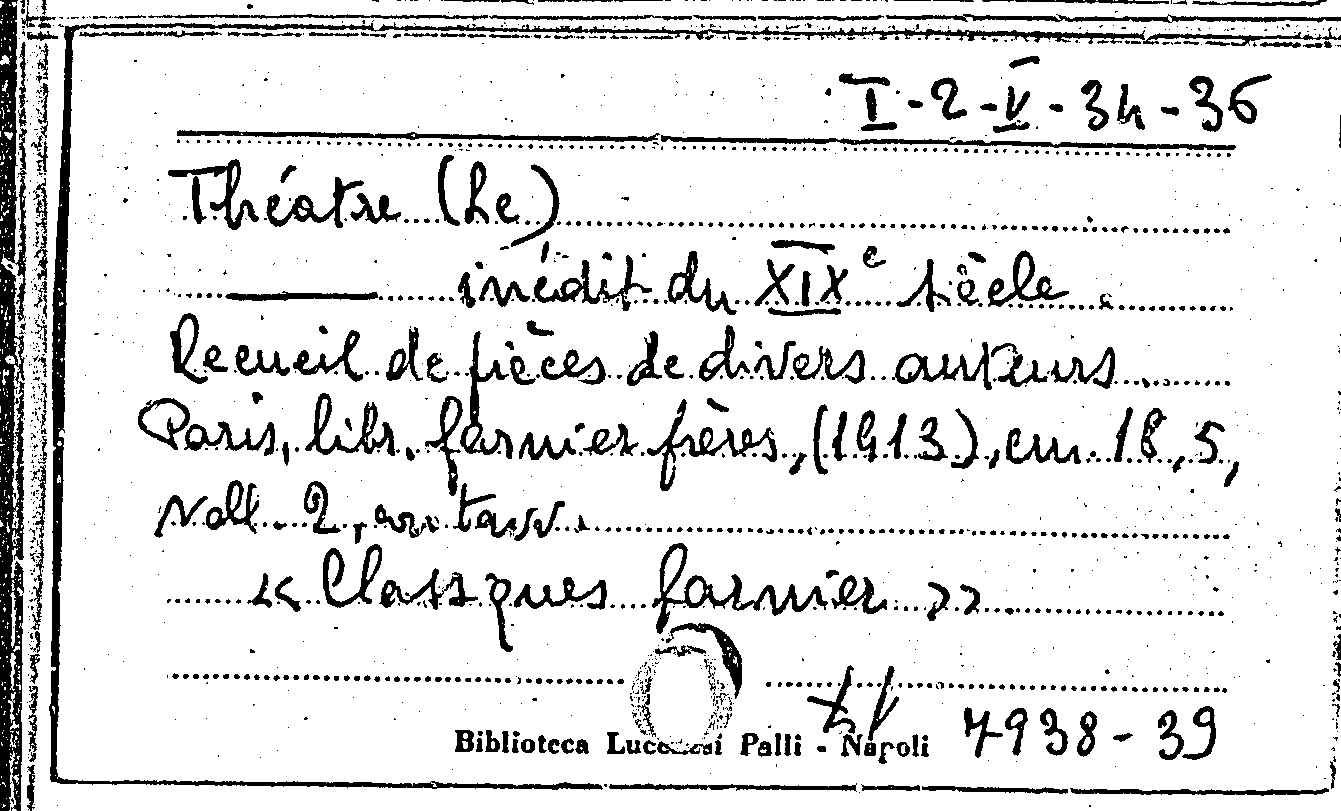 I-2-V-34-36
Théatre (Le)
inédit du XIXe siècle.
Recueil de pièces de divers auteurs.
Paris, libr. Garnier frères, (1913), cm. 18,5,
voll. 2,
«Classques Garnier».
7938-39
Biblioteca Lucchesi Palli - Napoli